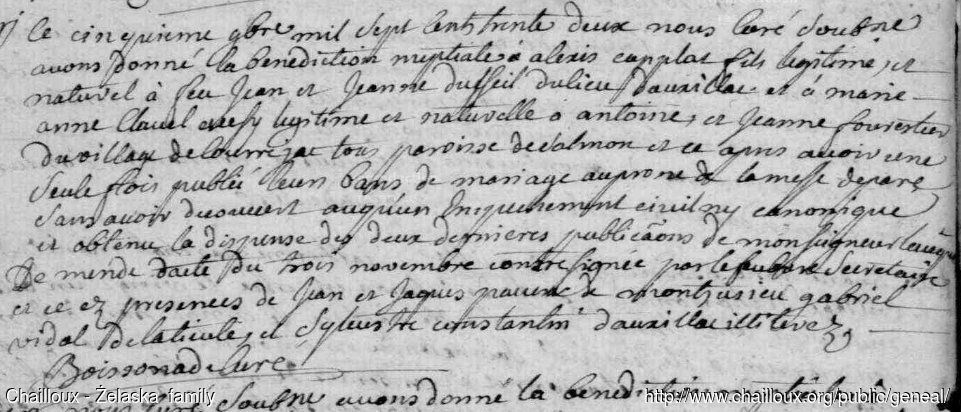 le cinquieme 9bre mil sept cens trente deux nous curé soubné
avons donné la benediction nuptiale à alexis capplat fils legitime, et
naturel à feu Jean et Jeanne dusseil du lieu d'auxillac et à marie
anne Clavel legitime et naturelle a antoine, et Jeanne fourestier
du village de tous paroisse de Salmon et ce apres avoir une
seule fois publié leurs bans de mariage au prone de la messe de paro
sans avoir descouvert auqu'un Empechement civil ny canonique
et obtenu la dispense des deux dernieres publicaõns de monseigneur leveque
De mende datté du trois novembre contresignee par secretaire
et ce ez presences de Jean et Jaques de gabriel
vidal de laticule, et Sylvestre constantin d'auxillac illiterez
Boissonade Curé
soubné avons donné la benediction
Chailloux - Żelaska family
http://www.chailloux.org/public/geneal/